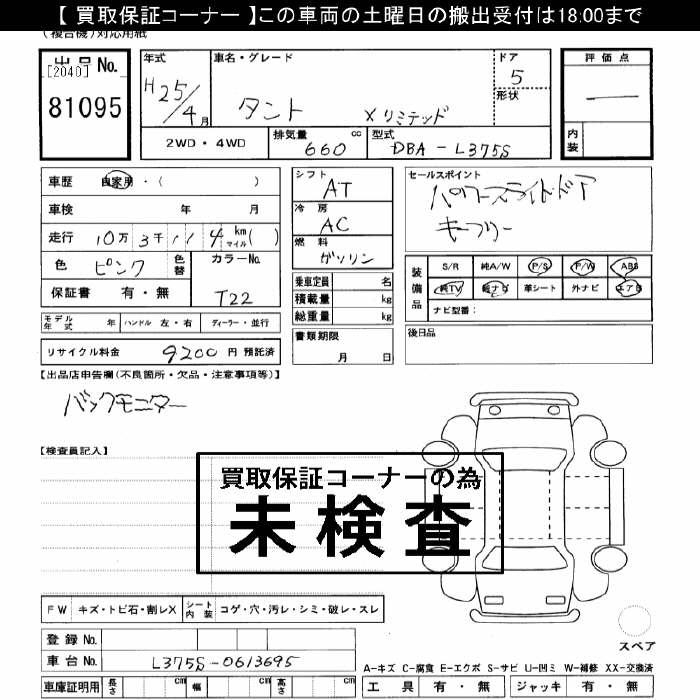 【 買取保証コーナー 】この車両の土曜日の搬出受付は18:00まで
(複合機)対応用紙
出品No.
[2040]
81095
年式
H25/4月
車名・グレード
タント Xリミテッド
ドア
5
形状
評価点
—
内装
2WD・4WD
排気量
660 cc
型式
DBA-L375S
車歴 自家用・( )
車検 年 月
走行 10万3千114 km マイル( )
色 ピンク 色替
カラーNo.
T22
保証書 有・無
シフト
AT
冷房
AC
燃料
ガソリン
乗車定員 名
積載量 kg
総重量 kg
セールスポイント
パワースライドドア
キーフリー
装備品
S/R 純A/W P/S P/W ABS
純TV 純ナビ 革シート 外ナビ エアB
ナビ型番:
モデル年式 年 ハンドル 左・右 ディーラー・並行
書類期限
月 日
後日品
リサイクル料金 9200 円 預託済
【出品店申告欄(不良箇所・欠品・注意事項等)】
バックモニター
【検査員記入】
買取保証コーナーの為
未検査
FW キズ・トビ石・割レX シート内装 コゲ・穴・汚レ・シミ・破レ・スレ
スペア
登録No.
車台No. L375S-0613695
A-キズ C-腐食 E-エクボ S-サビ U-凹ミ W-補修 XX-交換済
車庫証明用 長さ cm 幅 cm 高さ cm
工具 有・無 ジャッキ 有・無